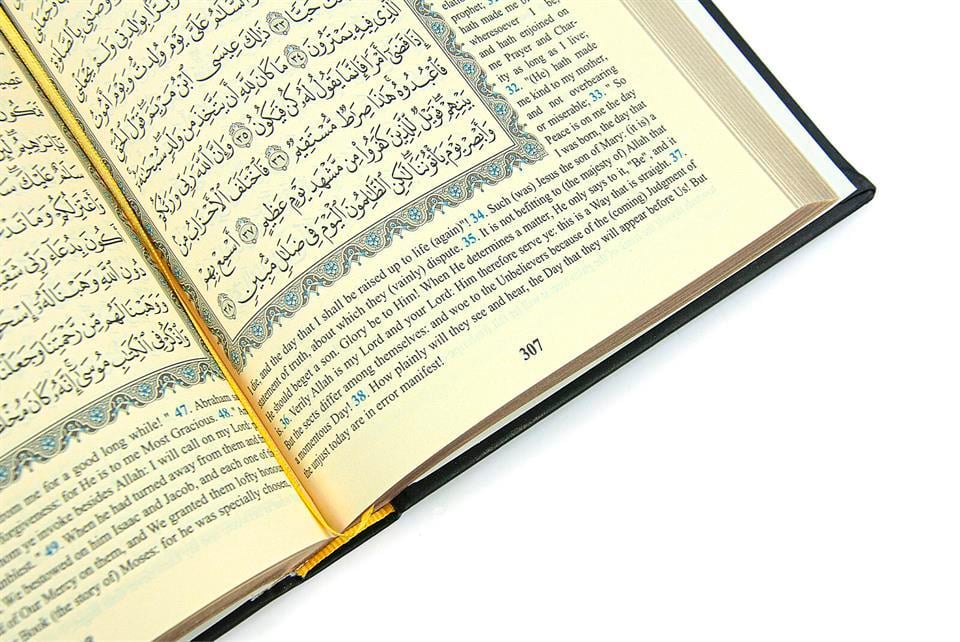 وَبَرًّا بِوَالِدَتِي وَلَمْ يَجْعَلْنِي
وَالسَّلَامُ عَلَيَّ يَوْمَ وُلِدْتُ وَيَوْمَ أَمُوتُ
حَيًّا ٣٣ ذَٰلِكَ عِيسَى ابْنُ مَرْيَمَ قَوْلَ الْحَقِّ
الَّذِي فِيهِ يَمْتَرُونَ ٣٤ مَا كَانَ لِلَّهِ أَنْ يَتَّخِذَ مِنْ وَلَدٍ سُبْحَانَهُ
إِذَا قَضَىٰ أَمْرًا فَإِنَّمَا يَقُولُ لَهُ كُنْ فَيَكُونُ ٣٥ وَإِنَّ اللَّهَ رَبِّي وَرَبُّكُمْ
فَاعْبُدُوهُ هَٰذَا صِرَاطٌ مُسْتَقِيمٌ ٣٦ فَاخْتَلَفَ الْأَحْزَابُ مِنْ
بَيْنِهِمْ فَوَيْلٌ لِلَّذِينَ كَفَرُوا مِنْ مَشْهَدِ يَوْمٍ عَظِيمٍ ٣٧ أَسْمِعْ بِهِمْ
وَأَبْصِرْ يَوْمَ يَأْتُونَنَا لَٰكِنِ الظَّالِمُونَ الْيَوْمَ فِي ضَلَالٍ مُبِينٍ ٣٨
prophet;
hath made me
wheresoever I be,
and hath enjoined on
me Prayer and Char-
ity as long as I live;
32. "(He) hath made
me kind to my mother,
and not overbearing
or miserable; 33. " So
Peace is on me the day
I was born, the day that
I die, and the day that I shall be raised up to life (again)"! 34. Such (was) Jesus the son of Mary: (it is) a
statement of truth, about which they (vainly) dispute. 35. It is not befitting to (the majesty of) Allah that
He should beget a son. Glory be to Him! When He determines a matter, He only says to it, "Be", and it
is. 36. Verily Allah is my Lord and your Lord: Him therefore serve ye: this is a Way that is straight. 37.
But the sects differ among themselves: and woe to the Unbelievers because of the (coming) Judgment of
a momentous Day! 38. How plainly will they see and hear, the Day that they will appear before Us! But
the unjust today are in error manifest!
307
دُونِ اللَّهِ وَهَبْنَا لَهُ إِسْحَاقَ
وَوَهَبْنَا لَهُمْ مِنْ رَحْمَتِنَا وَجَعَلْنَا
وَاذْكُرْ فِي الْكِتَابِ مُوسَىٰ إِنَّهُ كَانَ
from me for a good long while! " 47. Abraham
forgiveness: for He is to me Most Gracious. 48. "
whom ye invoke besides Allah: I will call on my Lord:
49. When he had turned away from them and
We bestowed on him Isaac and Jacob, and each one of
of Our Mercy on them, and We granted them lofty
Book (the story of) Moses: for he was specially chosen,